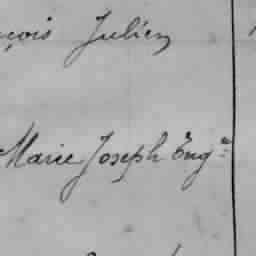 çois Julien
Marie Joseph Eug.ne